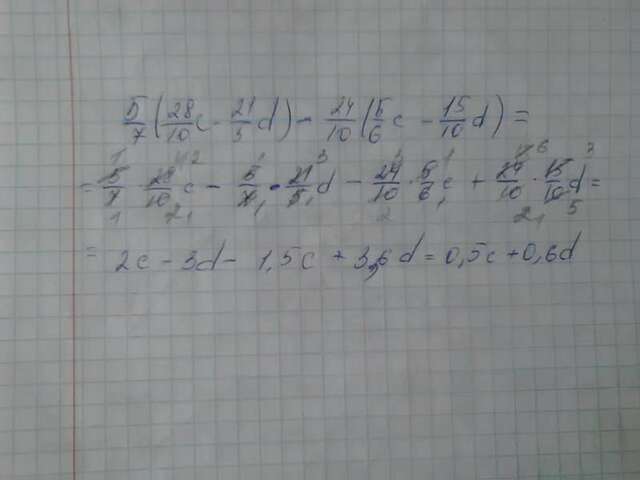 5/7(28/10c - 21/5d) - 24/10(5/6c - 15/10d) =
= 5/7 · 28/10c - 5/7 · 21/5d - 24/10 · 5/6c + 24/10 · 15/10d =
= 2c - 3d - 1,5c + 3,6d = 0,5c + 0,6d